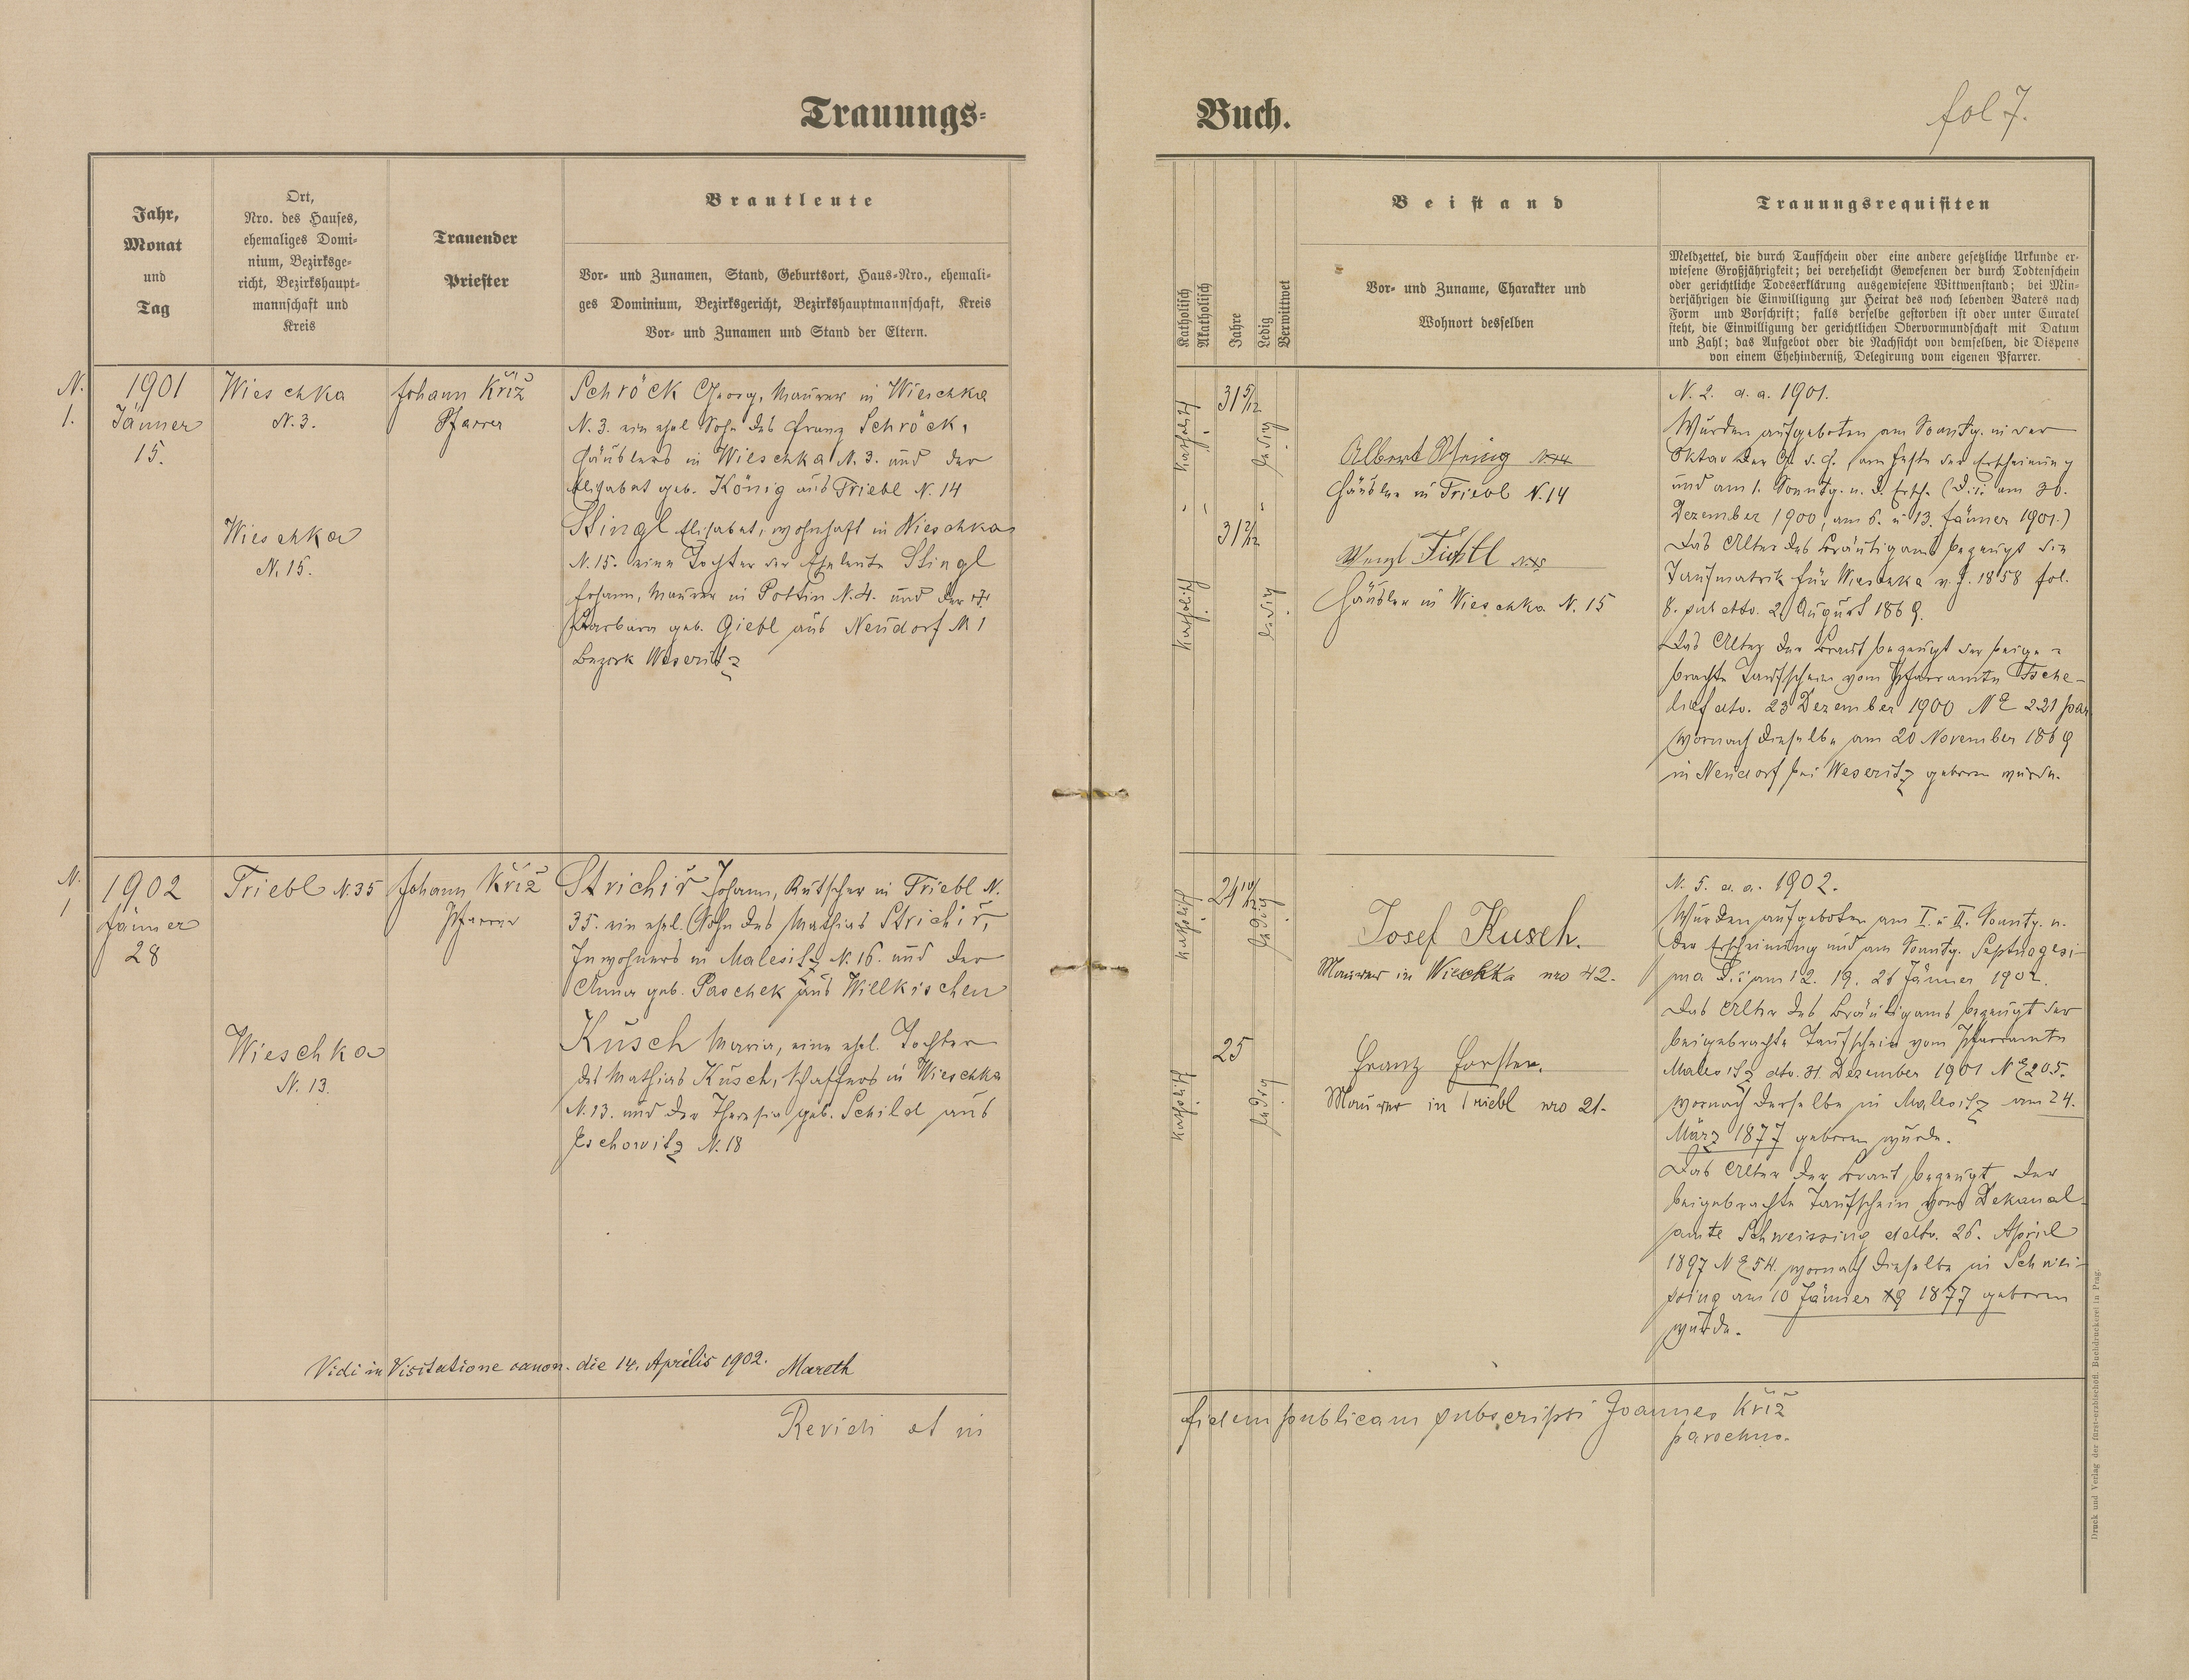 Trauungs-
Buch.
fol 7.
Jahr,
Monat
und
Tag
Ort,
Nro. des Hauses,
ehemaliges Domi-
nium, Bezirksge-
richt, Bezirkshaupt-
mannschaft und
Kreis
Trauender
Priester
Brautleute
Vor- und Zunamen, Stand, Geburtsort, Haus-Nro., ehemali-
ges Dominium, Bezirksgericht, Bezirkshauptmannschaft, Kreis
Vor- und Zunamen und Stand der Eltern.
Katholisch
Akatholisch
Jahre
Ledig
Verwittwet
Beistand
Vor- und Zuname, Charakter und
Wohnort desselben
Trauungsrequisiten
Meldzettel, die durch Taufschein oder eine andere gesetzliche Urkunde er-
wiesene Großjährigkeit; bei verehelicht Gewesenen der durch Todtenschein
oder gerichtliche Todeserklärung ausgewiesene Wittwenstand; bei Min-
derjährigen die Einwilligung zur Heirat des noch lebenden Vaters nach
Form und Vorschrift; falls derselbe gestorben ist oder unter Curatel
steht, die Einwilligung der gerichtlichen Obervormundschaft mit Datum
und Zahl; das Aufgebot oder die Nachsicht von demselben, die Dispens
von einem Ehehinderniß, Delegirung vom eigenen Pfarrer.
N.
1.
1901
Jänner
15.
Wieschka
N. 3.
Johann Kříž
Pfarrer
Schröck Georg, Maurer in Wieschka
N. 3. ein ehel. Sohn des Franz Schröck,
Häuslers in Wieschka N. 3. und der
Elisabet geb. König aus Triebl N. 14
Wieschka
N. 15.
Stingl Elisabet, wohnhaft in Wieschka
N. 15. eine Tochter der Eheleute Stingl
Johann, Maurer in Pottin N. 4. und der
Barbara geb. Giebl aus Neudorf N 1
Bezirk Weseritz
katholisch
31 5/12
ledig
katholisch
31 2/12
ledig
Albert N. 14
Häusler in Triebl N. 14
Wenzl Tichtl
Häusler in Wieschka N. 15
N. 2. a. a. 1901.
Wurden aufgeboten am Sonntg. in der
Oktav der G. d. H. am Feste der Erscheinung
und am 1. Sonntg. n. d. Ersch. (d. i. am 30.
Dezember 1900, am 6. u 13. Jänner 1901.)
Das Alter des Bräutigams bezeugt die
Taufmatrik für Wieschka v. J. 1858 fol.
8. sub dto. 2. August 1869.
Das Alter der Braut bezeugt der beige-
brachte Taufschein vom Pfarramte Tsche-
lief dto. 23 Dezember 1900 NE 221 par
wornach dieselbe am 20 November 1869
in Neudorf bei Weseritz geboren wurde.
N.
1
1902
Jänner
28
Triebl N. 35
Johann Kříž
Pfarrer
Strichiř Johann, Kutscher in Triebl N.
35. ein ehel. Sohn des Mathias Strichiř,
Inwohners in Malesitz N. 16. und der
Anna geb. Paschek aus Willkischen
Wieschka
N. 13.
Kusch Maria, eine ehel. Tochter
des Mathias Kusch, Schaffers in Wieschka
N. 13. und der Theresia geb. Schild aus
Eschowitz N. 18
katholisch
24 10/12
ledig
katholisch
25
ledig
Josef Kusch.
Maurer in Wieschka nro 42.
Franz Forster.
Maurer in Triebl nro 21.
N. 5. a. a. 1902.
Wurden aufgeboten am I. u II. Sonntg. n.
der Erscheinung und am Sonntg. Septuagesi-
ma d. i. am 12. 19. 26 Jänner 1902.
Das Alter des Bräutigams bezeugt der
beigebrachte Taufschein vom Pfarramte
Malesitz dto. 31. Dezember 1901 NE 205.
wornach derselbe in Malesitz am 24.
März 1877 geboren wurde.
Das Alter der Braut bezeugt der
beigebrachte Taufschein vom Dekanal-
amte Schweissing ddto. 26. April
1897 NE 54. wornach dieselbe in Schwei-
ssing am 10 Jänner 1877 geboren
wurde.
Vidi in Visitatione canon. die 14. Aprilis 1902. Mareth
Revidi et in
fidem publicam subscripsi Joannes Kříž
parochus.
Druck und Verlag der fürst-erzbischöfl. Buchdruckerei in Prag.